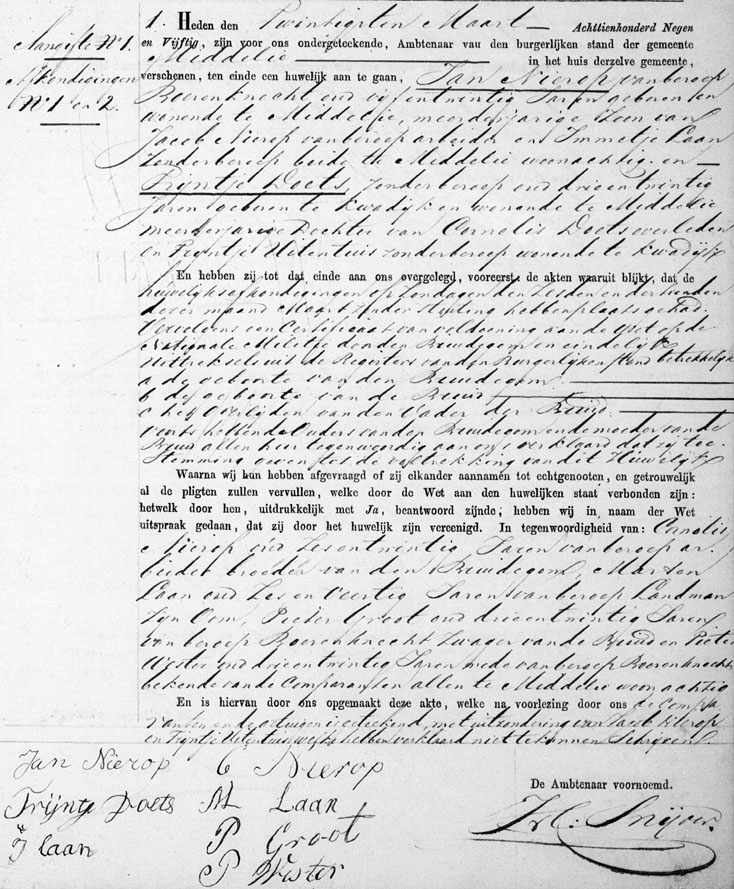 Aangifte No 1.
Afkondigingen
No 1 en 2.
1. Heden den Twintigsten Maart — Achttienhonderd Negen
en Vijftig, zijn voor ons ondergeteekende, Ambtenaar vau den burgerlijken stand der gemeente
Middelie in het huis derzelve gemeente,
verschenen, ten einde een huwelijk aan te gaan, Jan Nierop van beroep
Boerenknecht oud vijf en twintig Jaren geboren en
wonende te Middelie, meerderjarige Zoon van
Jacob Nierop van beroep arbeider en Immetje Laan
Zonder beroep beide te Middelie woonachtig. en —
Trijntje Doets, zonder beroep oud drie en twintig
Jaren geboren te Kwadijk en wonende te Middelie
meerderjarige Dochter van Cornelis Doets overleden
en Trijntje Uitentuis zonder beroep wonende te Kwadijk
En hebben zij tot dat einde aan ons overgelegd, vooreerst: de akten waaruit blijkt, dat de
huwelijksafkondigingen op Zondagen den Zesden en dertienden
dezer maand Maart zonder stuiting hebben plaats gehad
Vervolgens een Certificaat van voldoening aan de Wet op de
Nationale Militie door den Bruidegom en eindelijk
Uittreksels uit de Registers van den Burgerlijken stand betrekkelijk
a de geboorte van den Bruidegom.
b de geboorte van de Bruid
c het overlijden van den Vader der Bruid.
voorts hebben de Ouders van den Bruidegom en de moeder van de
Bruid allen hier tegenwoordig aan ons verklaard dat zij toe
stemming geven tot de voltrekking van dit Huwelijk
Waarna wij hun hebben afgevraagd of zij elkander aannamen tot echtgenooten, en getrouwelijk
al de pligten zullen vervullen, welke door de Wet aan den huwelijken staat verbonden zijn:
hetwelk door hen, uitdrukkelijk met Ja, beantwoord zijnde, hebben wij in naam der Wet
uitspraak gedaan, dat zij door het huwelijk zijn vereenigd. In tegenwoordigheid van: Cornelis
Nierop oud Zes en twintig Jaren van beroep ar-
beider broeder van den Bruidegom, Marten
Laan oud Zes en Veertig Jaren van beroep Landman
Zijn Oom, Pieter Groot oud drie en twintig Jaren
van beroep Boerenknecht Zwager van de Bruid en Pieter
Wester oud drie en twintig Jaren mede van beroep Boerenknecht
bekende van de Comparanten allen te Middelie woonachtig
En is hiervan door ons opgemaakt deze akte, welke na voorlezing door ons de Compa
ranten en de getuigen is geteekend, met uitzondering van Jacob Nierop
en Trijntje Uitentuis welke hebben verklaard niet te kunnen Schrijven.
De Ambtenaar voornoemd.
Jan Nierop C Nierop
Trijntje Doets M Laan
I laan P Groot
P Wester